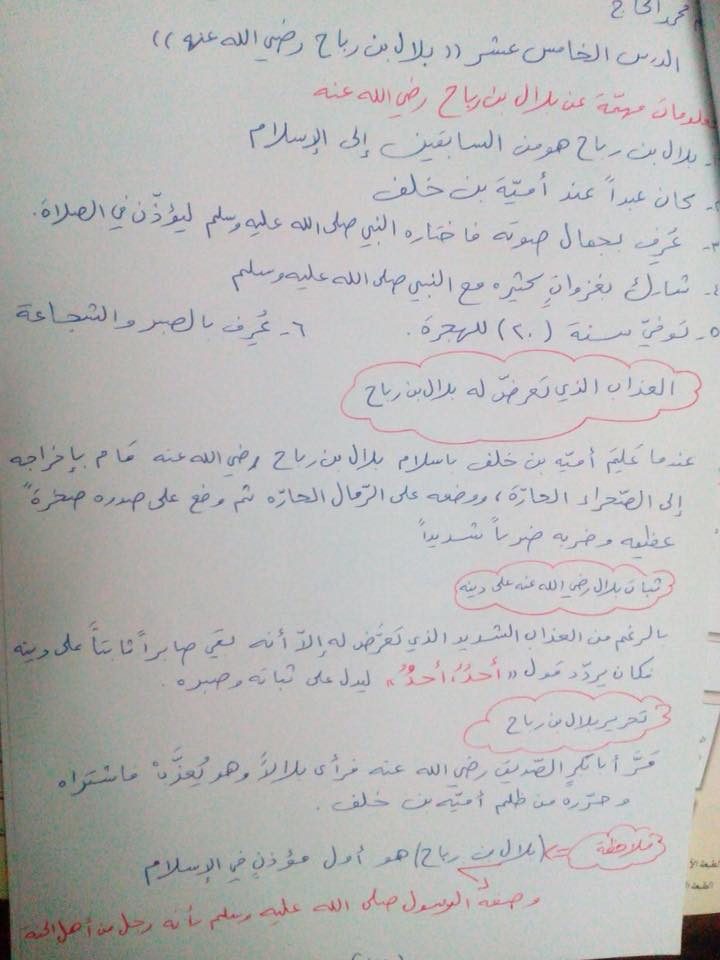 محمد الحاج
الدرس الخامس عشر ((بلال بن رباح رضي الله عنه))
معلومات مهمّة عن بلال بن رباح رضي الله عنه
بلال بن رباح هو من السابقين إلى الإسلام
٢- كان عبداً عند أميّة بن خلف
٣- عُرِف بجمال صوته فاختاره النبي صلى الله عليه وسلم ليؤذّن في الصلاة.
٤- شارك بغزواتٍ كثيره مع النبي صلى الله عليه وسلم
٥- توفيّ سنة (٢٠) للهجرة. ٦- عُرِف بالصبر والشجاعة
العذاب الذي تعرضّ له بلال بن رباح
عندما عَلِمَ أميّه بن خلف باسلام بلال بن رباح رضي الله عنه قام بإخراجه
إلى الصّحراء الحارّة، ووضعه على الرّمال الحارّه ثم وضع على صدره صخرةً
عظيمه وضربه ضرباً شديداً
ثبات بلال رضي الله عنه على دينه
بالرغم من العذاب الشديد الذي تعرّض له إلاّ أنه بقي صابراً ثابتاً على دينه
فكان يردّد قول «أحدٌ، أحدٌ» ليدل على ثباته وصبره.
تحرير بلال بن رباح
مَرَّ أبا بكرٍ الصّديق رضي الله عنه فرأى بلالاً وهو يُعذَّبْ فاشتراه
وحرّره من ظلم أميّه بن خلف.
ملاحظة => (بلال بن رباح) هو أول مؤذنٍ في الإسلام
وصفهُ الرسول صلى الله عليه وسلم بأنه رجل من أهل الجنة